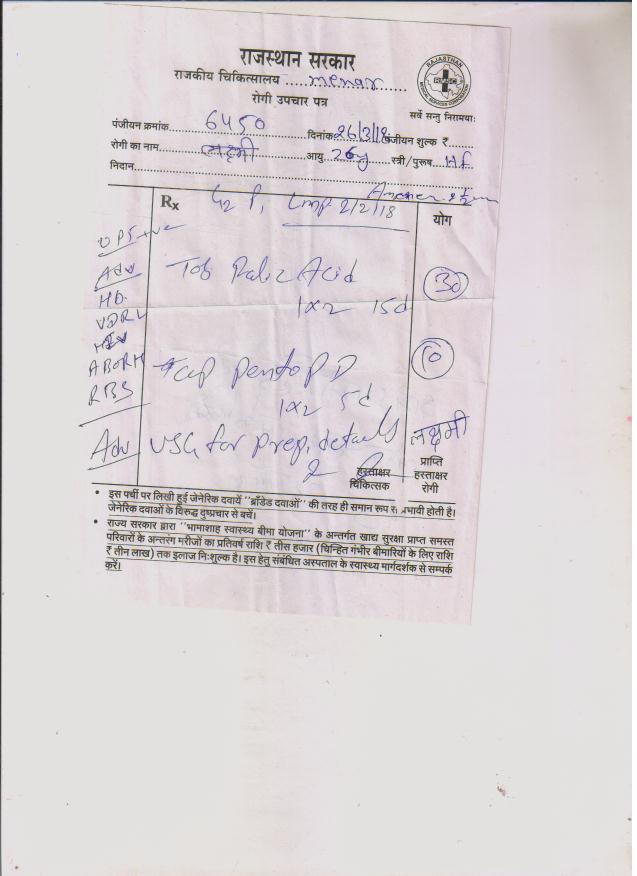 राजस्थान सरकार
राजकीय चिकित्सालय ..... menar ..........
रोगी उपचार पत्र
RAJASTHAN
MEDICAL SERVICES CORPORATION
सर्वे सन्तु निरामयाः
पंजीयन क्रमांक..... 6450 ..... दिनांक 26/3/18 पंजीयन शुल्क ₹ .....
रोगी का नाम..... लक्ष्मी ..... आयु.. 26y ..स्त्री/पुरूष.. H F
निदान.....
Rx G2 P1 LMP 2/2/18
योग
UPT +ve
Adv
Tab Folic Acid
30
1x2 15d
Hb
VDRL
HIV
ABORH
RBS
Cap Panto P D
10
1x2 5d
Adv USG for preg. details
लक्ष्मी
हस्ताक्षर
चिकित्सक
प्राप्ति
हस्ताक्षर
रोगी
• इस पर्ची पर लिखी हुई जेनेरिक दवायें ''ब्राँडेड दवाओं'' की तरह ही समान रूप से प्रभावी होती है।
जेनेरिक दवाओं के विरुद्ध दुष्प्रचार से बचें।
• राज्य सरकार द्वारा ''भामाशाह स्वास्थ्य बीमा योजना'' के अन्तर्गत खाद्य सुरक्षा प्राप्त समस्त
परिवारों के अन्तरंग मरीजों का प्रतिवर्ष राशि ₹ तीस हजार (चिन्हित गंभीर बीमारियों के लिए राशि
₹ तीन लाख) तक इलाज निःशुल्क है। इस हेतु संबंधित अस्पताल के स्वास्थ्य मार्गदर्शक से सम्पर्क
करें।